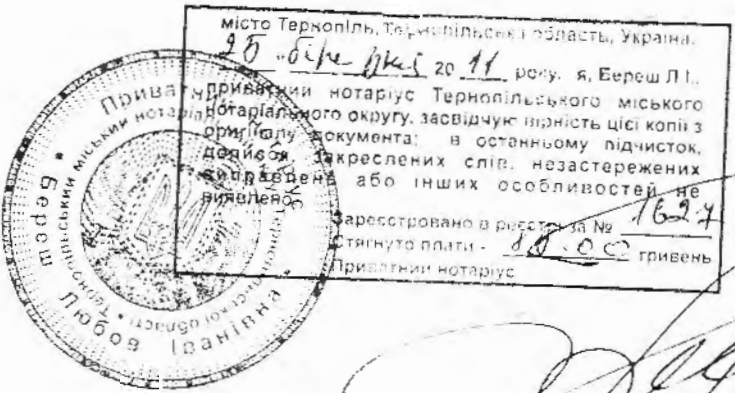 місто Тернопіль, Тернопільська область, Україна.
20 11 року. я, Береш Л.І.,
приватний нотаріус Тернопільського міського
нотаріального округу, засвідчую вірність цієї копії з
оригіналу документа: в останньому підчисток,
дописок, закреслених слів, незастережених
виправлень або інших особливостей не
виявлено.
Зареєстровано в реєстрі за № 1627
Стягнуто плати - гривень
Приватний нотаріус
Приватний нотаріус
Береш Любов Іванівна
Тернопільський міський нотаріальний
Тернопільської області